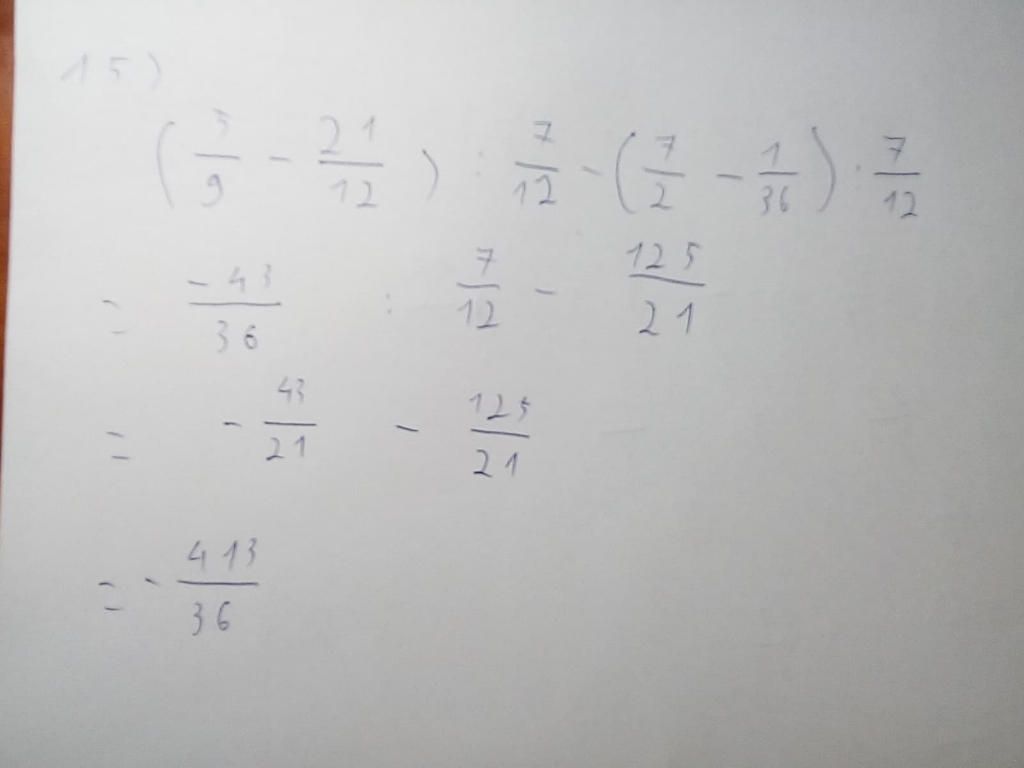 15)
(5/9 - 21/12) : 7/12 - (7/2 - 1/36) : 7/12
= -43/36 : 7/12 - 125/21
= - 43/21 - 125/21
= - 413/36